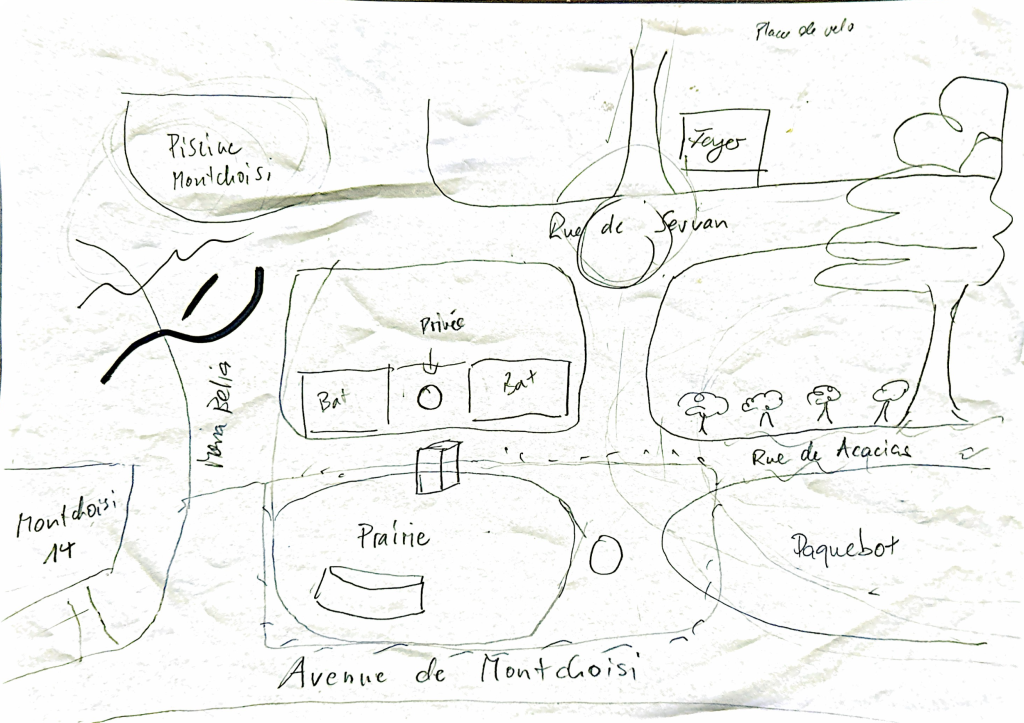 Place de velo
Piscine
Montchoisi
Foyer
Rue de Servan
Privée
Bat
Bat
Maria Belia
Rue de Acacias
Montchoisi
14
Prairie
Paquebot
Avenue de Montchoisi